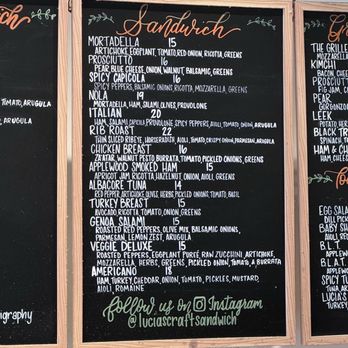 Sandwich
MORTADELLA 15
ARTICHOKE, EGGPLANT, TOMATO, RED ONION, RICOTTA, GREENS
PROSCIUTTO 16
PEAR, BLUE CHEESE, ONION, WALNUT, BALSAMIC, GREENS
SPICY CAPICOLA 16
SPICY PEPPERS, BALSAMIC, ONION, RICOTTA, MOZZARELLA, GREENS
NOLA 19
MORTADELLA, HAM, SALAMI, OLIVES, PROVOLONE
ITALIAN 20
HAM, SALAMI, CAPICOLA, PROVOLONE, SPICY PEPPERS, AIOLI, TOMATO, ONION, ARUGULA
RIB ROAST 22
THIN SLICED RIBEYE, HORSERADISH, AIOLI, TOMATO, CRISPY ONION, PARMESAN, ARUGULA
CHICKEN BREAST 16
ZA'ATAR, WALNUT PESTO, BURRATA, TOMATO, PICKLED ONIONS, GREENS
APPLEWOOD SMOKED HAM 15
APRICOT JAM, RICOTTA, HAZELNUT, ONION, AIOLI, GREENS
ALBACORE TUNA 14
RED PEPPER, ARTICHOKE, OLIVES, HERBS, PICKLED ONIONS, TOMATO, BASIL
TURKEY BREAST 15
AVOCADO, RICOTTA, TOMATO, ONION, GREENS
GENOA SALAMI 15
ROASTED RED PEPPERS, OLIVE MIX, BALSAMIC ONIONS,
PARMESAN, LEMON ZEST, ARUGULA
VEGGIE DELUXE 15
ROASTED PEPPERS, EGGPLANT PURÉE, RAW ZUCCHINI, ARTICHOKE,
MOZZARELLA, HERBS, GREENS, PICKLED ONION, TOMATO, & BURRATA
AMERICANO 18
HAM, TURKEY, CHEDDAR, ONION, TOMATO, PICKLES, MUSTARD,
AIOLI, ROMAINE
follow us on Instagram
@luciascraftsandwich
TOMATO, ARUGULA
ARUGULA
igraphy
THE GRILLE
MOZZARELLA
KIMCHI
BACON, CHEE
PROSCIUT
FIG JAM, CAM
PEAR
GORGONZO
LEEK
POTATO, HERB
BLACK TR
SPINACH, ON
HAM & CH
HAM
EGG SALA
DILL, PICKLE
BABY SH
AVOCADO
B.L.T.
APPLEWO
B.L.A.T.
APPLEWO
SPICY TU
TUNA, AIOL
ITAL